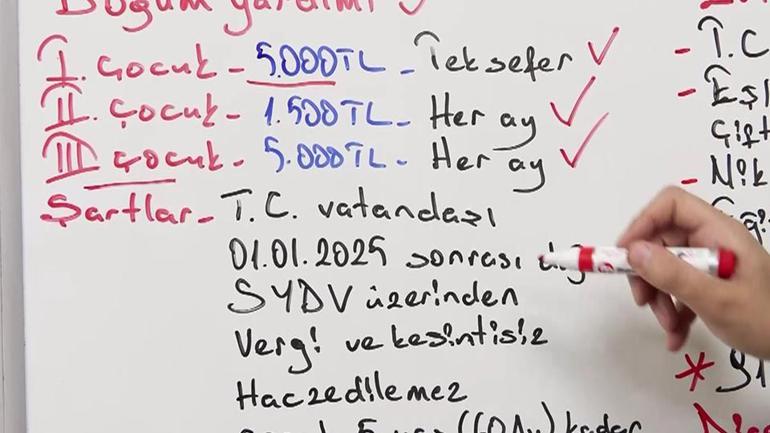 Doğum yardımı
I. Çocuk - 5.000TL - Tek sefer
II. Çocuk - 1.500TL - Her ay
III Çocuk - 5.000TL - Her ay
Şartlar - T.C. vatandaşı
01.01.2025 sonrası
SYDV üzerinden
Vergi ve kesintisiz
Haczedilemez
5 (60Ay) kadar
- T.C
- Eşl
Çift
- Nik
*